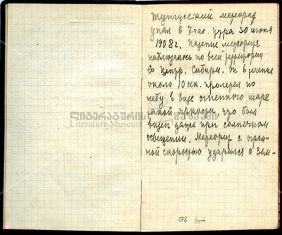 Тунгусский метеорит
упал в 7 час. утра 30 июня
1908 г. Падение метеорита
наблюдалось по всей территории
Сибири. Он в течение
около 10 сек. пролетел по
небу в виде огненного шара
такой яркости, что был
виден даже при солнечном
освещении. Метеорит с огром-
ной скоростью ударился о зем-
ლიტერატურის მუზეუმი
Literature Museum